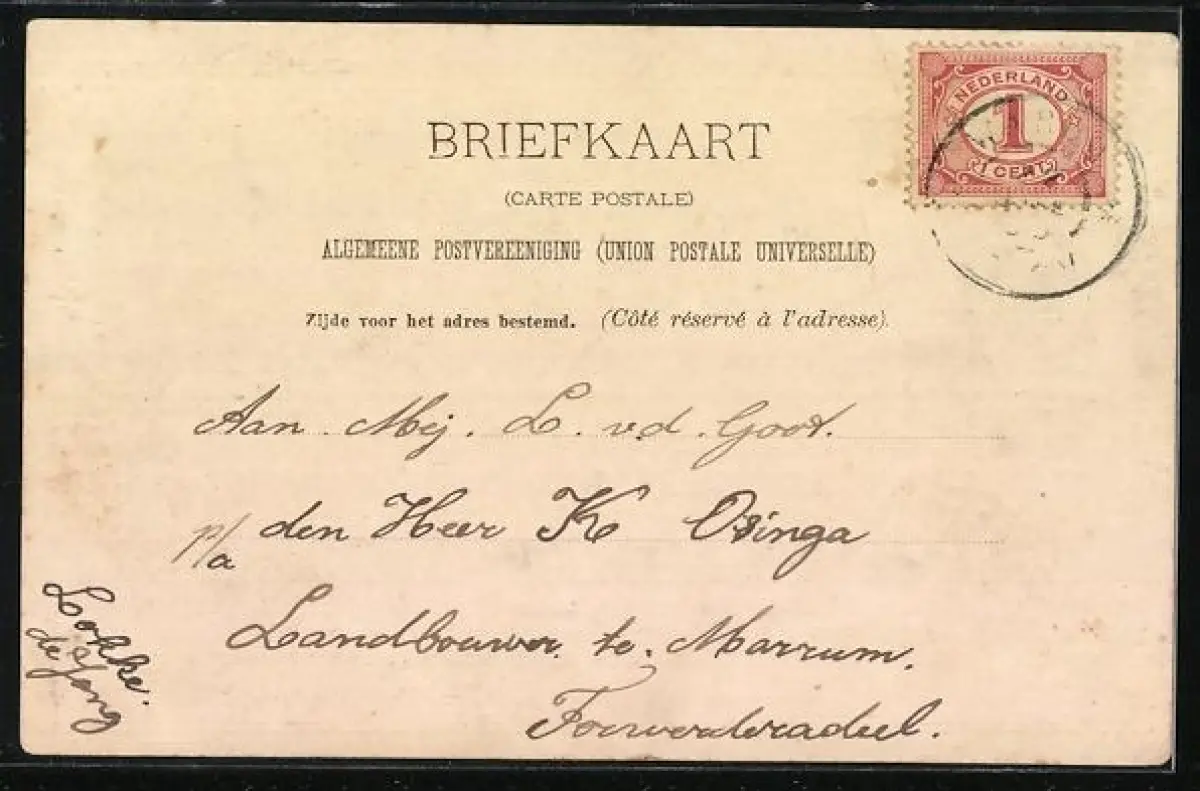 NEDERLAND
1
1 CENT
BRIEFKAART
(CARTE POSTALE)
ALGEMEENE POSTVEREENIGING (UNION POSTALE UNIVERSELLE)
Zijde voor het adres bestemd. (Côté réservé à l'adresse).
Aan Mej. L. v.d. Goot.
p/a den Heer K Osinga
Landbouwer te Marrum.
Ferwerderadeel.
Lokke
de Jong